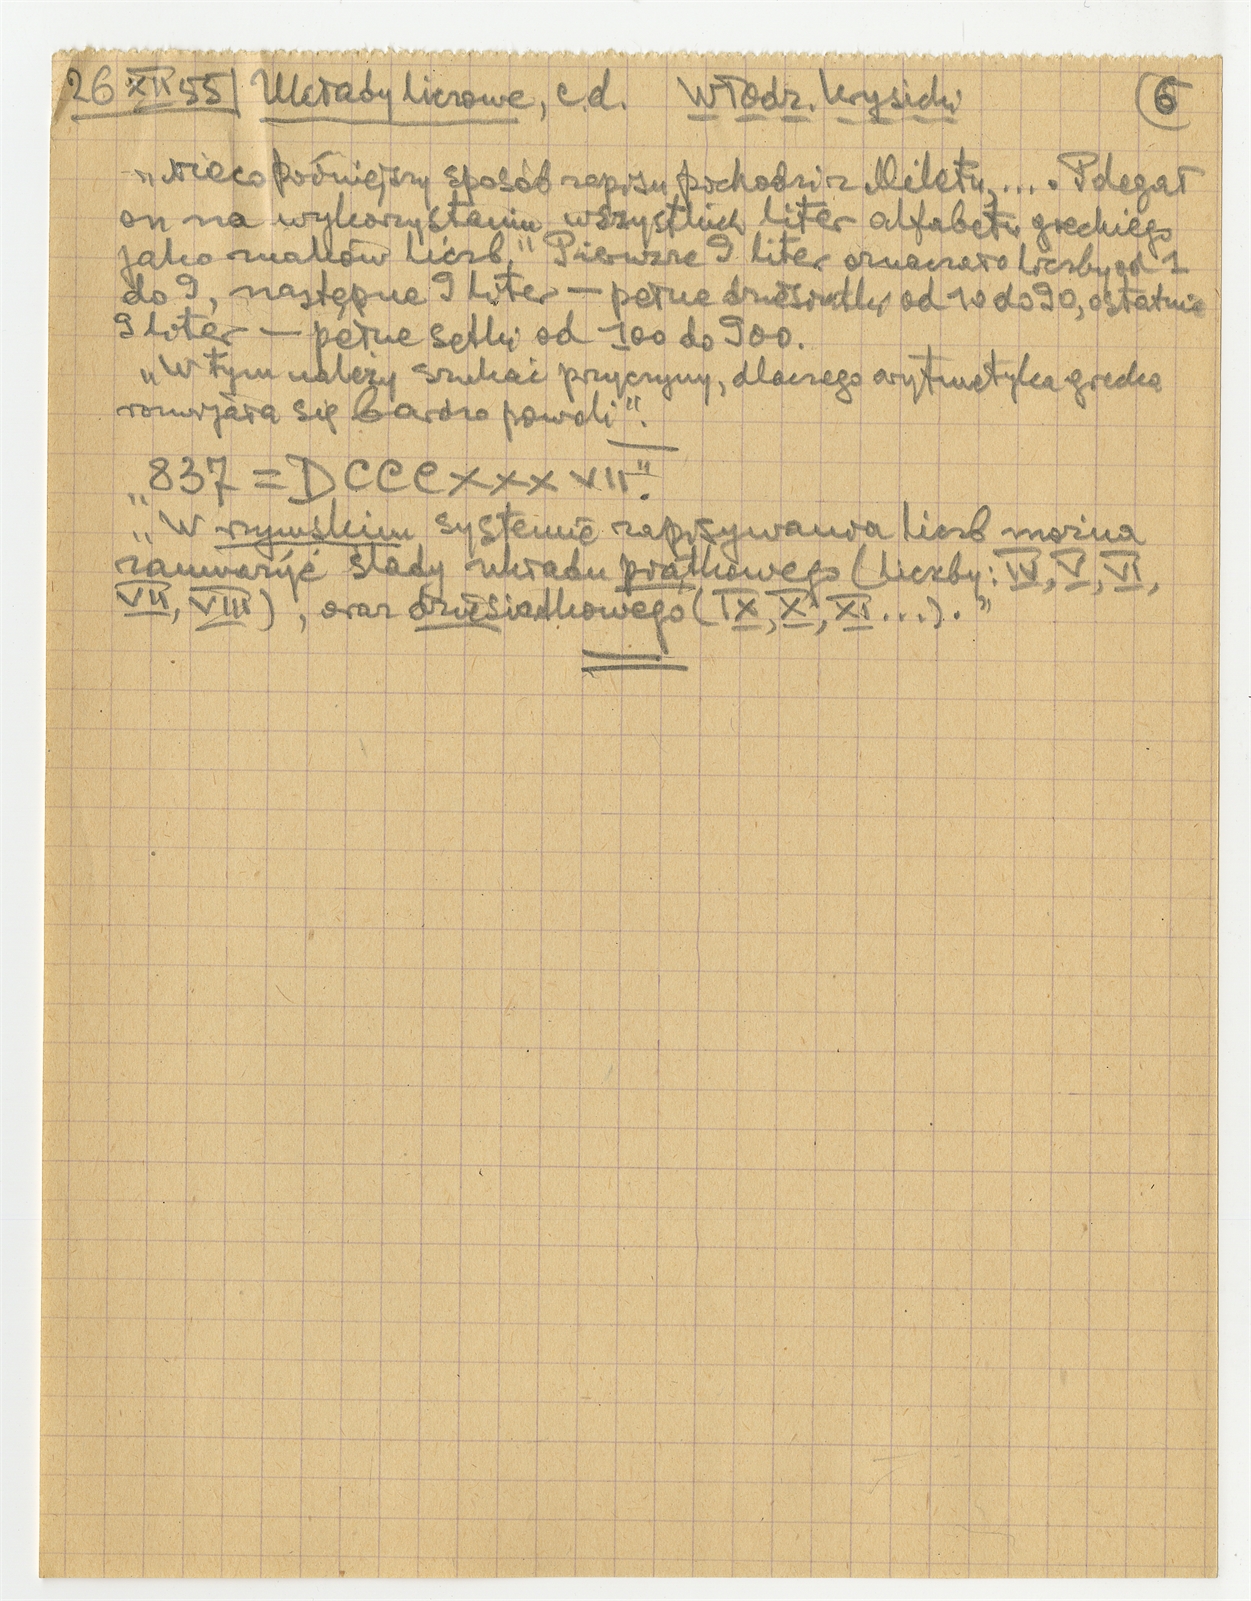 26 XII 55 | Układy liczowe, c.d. Włodz. Krysicki 6
„Nieco późniejszy sposób zapisu pochodzi z Miletu, .... Polegał
on na wykorzystaniu wszystkich liter alfabetu greckiego
jako znaków liczb." Pierwsze 9 liter oznaczało liczby od 1
do 9, następne 9 liter — pełne dziesiątki od 10 do 90, ostatnie
9 liter — pełne setki od 100 do 900.
„W tym należy szukać przyczyny, dlaczego arytmetyka grecka
rozwijała się bardzo powoli".
„837 = DCCCXXXVII".
„W rzymskim systemie zapisywania liczb można
zauważyć ślady układu piątkowego (liczby: IV, V, VI,
VII, VIII), oraz dziesiątkowego (IX, X, XI...)."